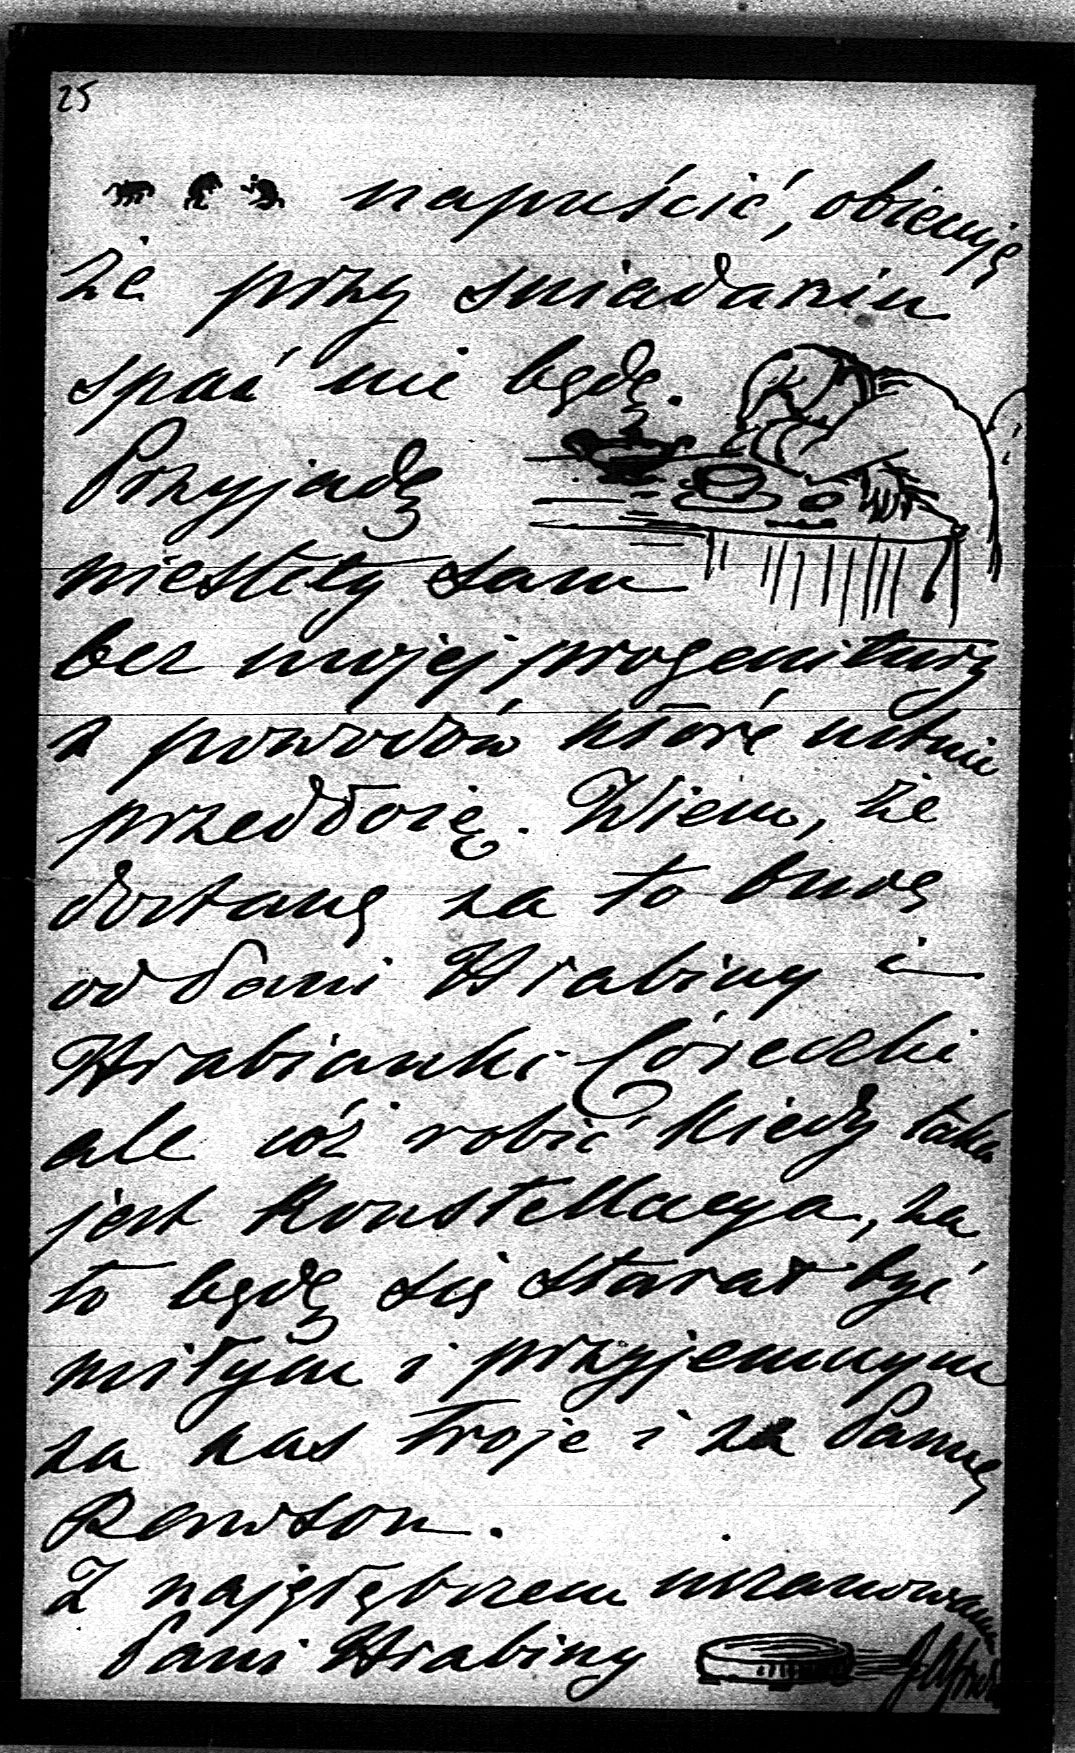 25
napuścić, obiecuję
że przy sniadaniu
spać nie będę.
Przyjadę
niestety sam
bez mojej progenitury
z powodów które ustnie
przedłożę. Wiem, że
dostanę za to burę
od Pani Hrabiny i
Hrabianki Córeczki
ale cóż robić kiedy taka
jest Konstellacya, za
to będę się starał być
miłym i przyjemnym
za nas troje i za Pannę
Rewson.
Z najgłębszem uszanowaniem
Pani Hrabiny